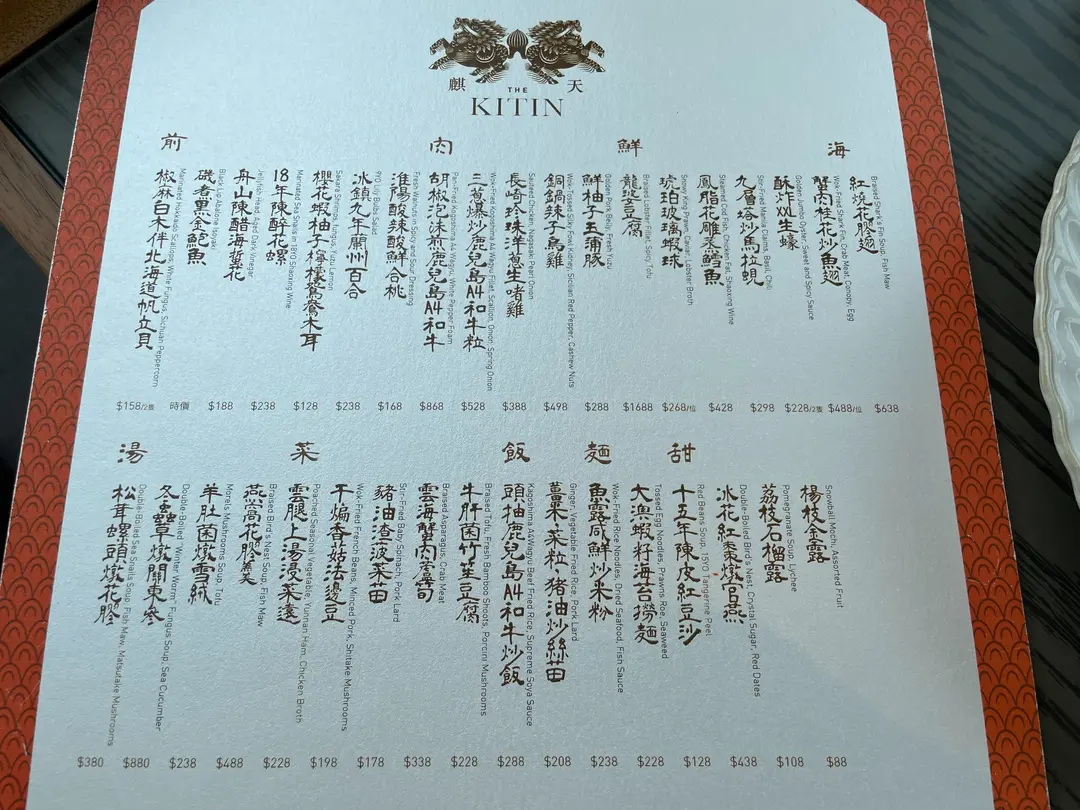 麒 天
THE
KITIN
前
椒麻白木伴北海道帆立貝
Marinated Hokkaido Scallops, White Fungus, Sichuan Peppercorn
磯煮黑金鮑魚
Black Lip Abalone Isoyaki
舟山陳醋海蜇花
Jellyfish Head, Aged Dark Vinegar
18年陳醉花螺
Marinated Sea Snails in 18YO Shaoxing Wine
櫻花蝦柚子檸檬鴛鴦木耳
Sakura Shrimps, Fungus, Yuzu, Lemon
冰鎮九年蘭州百合
9YO Lily Bulbs Salad
淮陽酸辣酸鮮合桃
Fresh Walnuts in Spicy and Sour Dressing
肉
胡椒泡沫煎鹿兒島A4和牛
Pan-Fried Kagoshima A4 Wagyu, White Pepper Foam
三蔥爆炒鹿兒島A4和牛粒
Wok-Fried Kagoshima A4 Wagyu Fillet, Scallion, Onion, Spring Onion
長崎珍珠洋蔥生啫雞
Sauteed Chicken, Nagasaki Pearl Onion
銅鍋辣子烏雞
Wok-Tossed Silky Fowl, Kidney, Sicilian Red Pepper, Cashew Nuts
鮮柚子五蒲豚
Golden Pork Belly, Fresh Yuzu
鮮
龍皇豆腐
Braised Lobster Fillet, Spicy Tofu
琥珀玻璃蝦球
Snow King Prawn, Caviar, Lobster Broth
鳳脂花雕蒸鱈魚
Steamed Cod Fish, Chicken Fat, Shaoxing Wine
九層塔炒馬拉蜆
Stir-Fried Manila Clams, Basil, Chili
酥炸生蠔
Golden Jumbo Oyster, Sweet and Spicy Sauce
海
蟹肉桂花炒魚翅
Wok-Fried Shark Fin, Crab Meat, Conopy, Egg
紅燒花膠翅
Braised Shark's Fin Soup, Fish Maw
$158/2隻 時價 $188 $238 $128 $238 $168 $868 $528 $388 $498 $288 $1688 $268/位 $428 $298 $228/2隻 $488/位 $638
湯
松茸螺頭燉花膠
Double-Boiled Sea Snails Soup, Fish Maw, Matsutake Mushrooms
冬蟲草燉關東參
Double-Boiled "Winter Worm" Fungus Soup, Sea Cucumber
羊肚菌燉雪絨
Morels Mushrooms Soup, Tofu
燕窩花膠羹
Braised Bird's Nest Soup, Fish Maw
菜
雲腿上湯浸菜遠
Poached Seasonal Vegetable, Yunnan Ham, Chicken Broth
干煸香菇法邊豆
Wok-Fried French Beans, Minced Pork, Shitake Mushrooms
豬油渣菠菜苗
Stir-Fried Baby Spinach, Pork Lard
雲海蟹肉露荀
Braised Asparagus, Crab Meat
牛肝菌竹笙豆腐
Braised Tofu, Fresh Bamboo Shoots, Porcini Mushrooms
飯
頭抽鹿兒島A4和牛炒飯
Kagoshima A4Wagyu Beef Fried Rice, Supreme Soya Sauce
薑米菜粒豬油炒絲苗
Ginger, Vegetable Fried Rice, Pork Lard
麵
魚露咸鮮炒米粉
Wok-Fried Rice Noodles, Dried Seafood, Fish Sauce
大漁蝦籽海苔撈麵
Tossed Egg Noodles, Prawns Roe, Seaweed
甜
十五年陳皮紅豆沙
Red Beans Soup, 15YO Tangerine Peel
冰花紅棗燉官燕
Double-Boiled Bird's Nest, Crystal Sugar, Red Dates
荔枝石榴露
Pomegranate Soup, Lychee
楊枝金露
Snowball Mochi, Assorted Fruit
$380 $880 $238 $488 $228 $198 $178 $338 $228 $288 $208 $238 $228 $128 $438 $108 $88